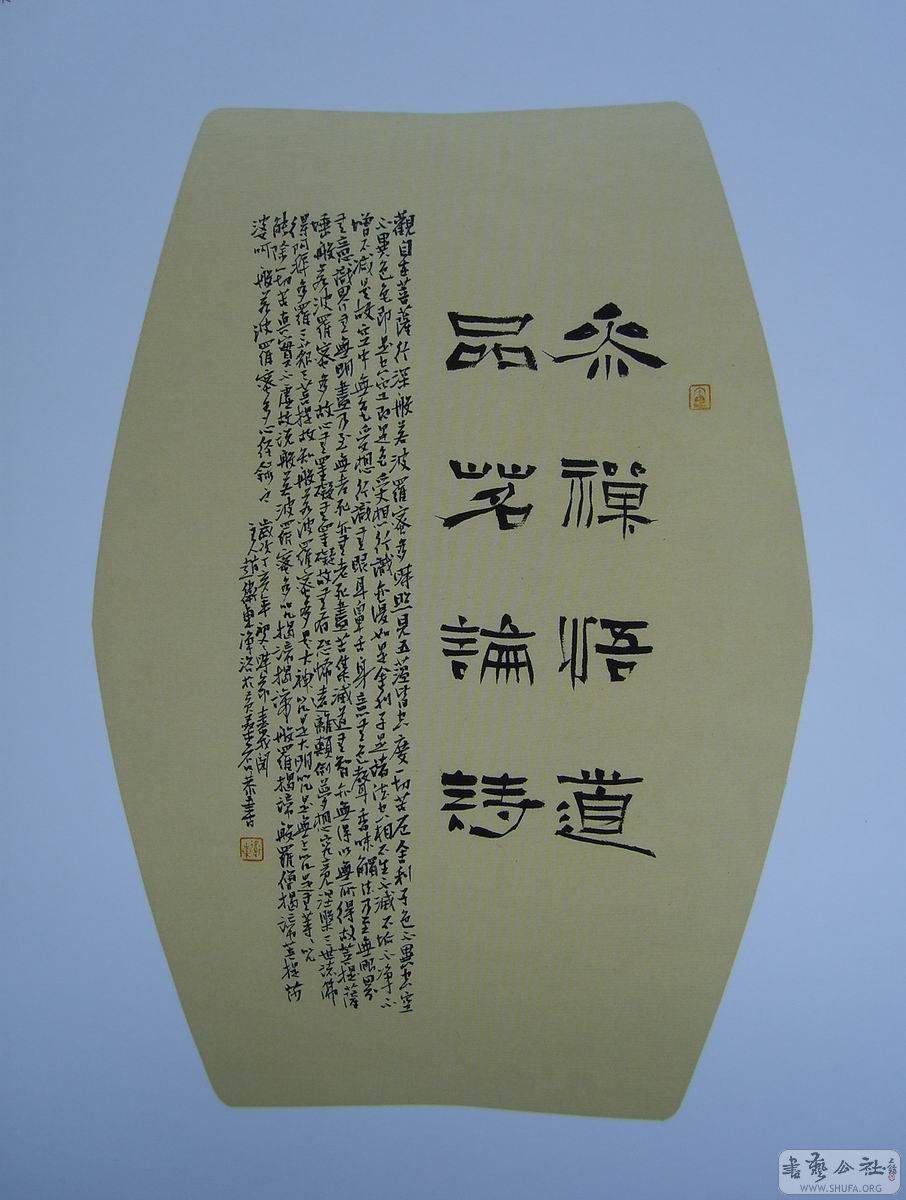 參禪悟道
品茗論詩
觀自在菩薩行深般若波羅蜜多時照見五蘊皆空度一切苦厄舍利子色不異空空
不異色色即是空空即是色受想行識亦復如是舍利子是諸法空相不生不滅不垢不淨不
增不減是故空中無色受想行識無眼耳鼻舌身意無色聲香味觸法乃至無眼界
無意識界無無明盡乃至無老死亦無老死盡苦集滅道無智亦無得以無所得故菩提薩
埵般若波羅蜜多故心無罣礙無罣礙故無有恐怖遠離顛倒夢想究竟涅槃三世諸佛
得阿耨多羅三藐三菩提故知般若波羅蜜多是大神咒是大明咒是無上咒是無等等咒
能除一切苦真實不虛故說般若波羅蜜多咒揭諦揭諦般羅揭諦般羅僧揭諦菩提莎
婆呵 般若波羅蜜多心經錄之 歲次丁亥年
主人趙
書藝公社
WWW.SHUFA.ORG